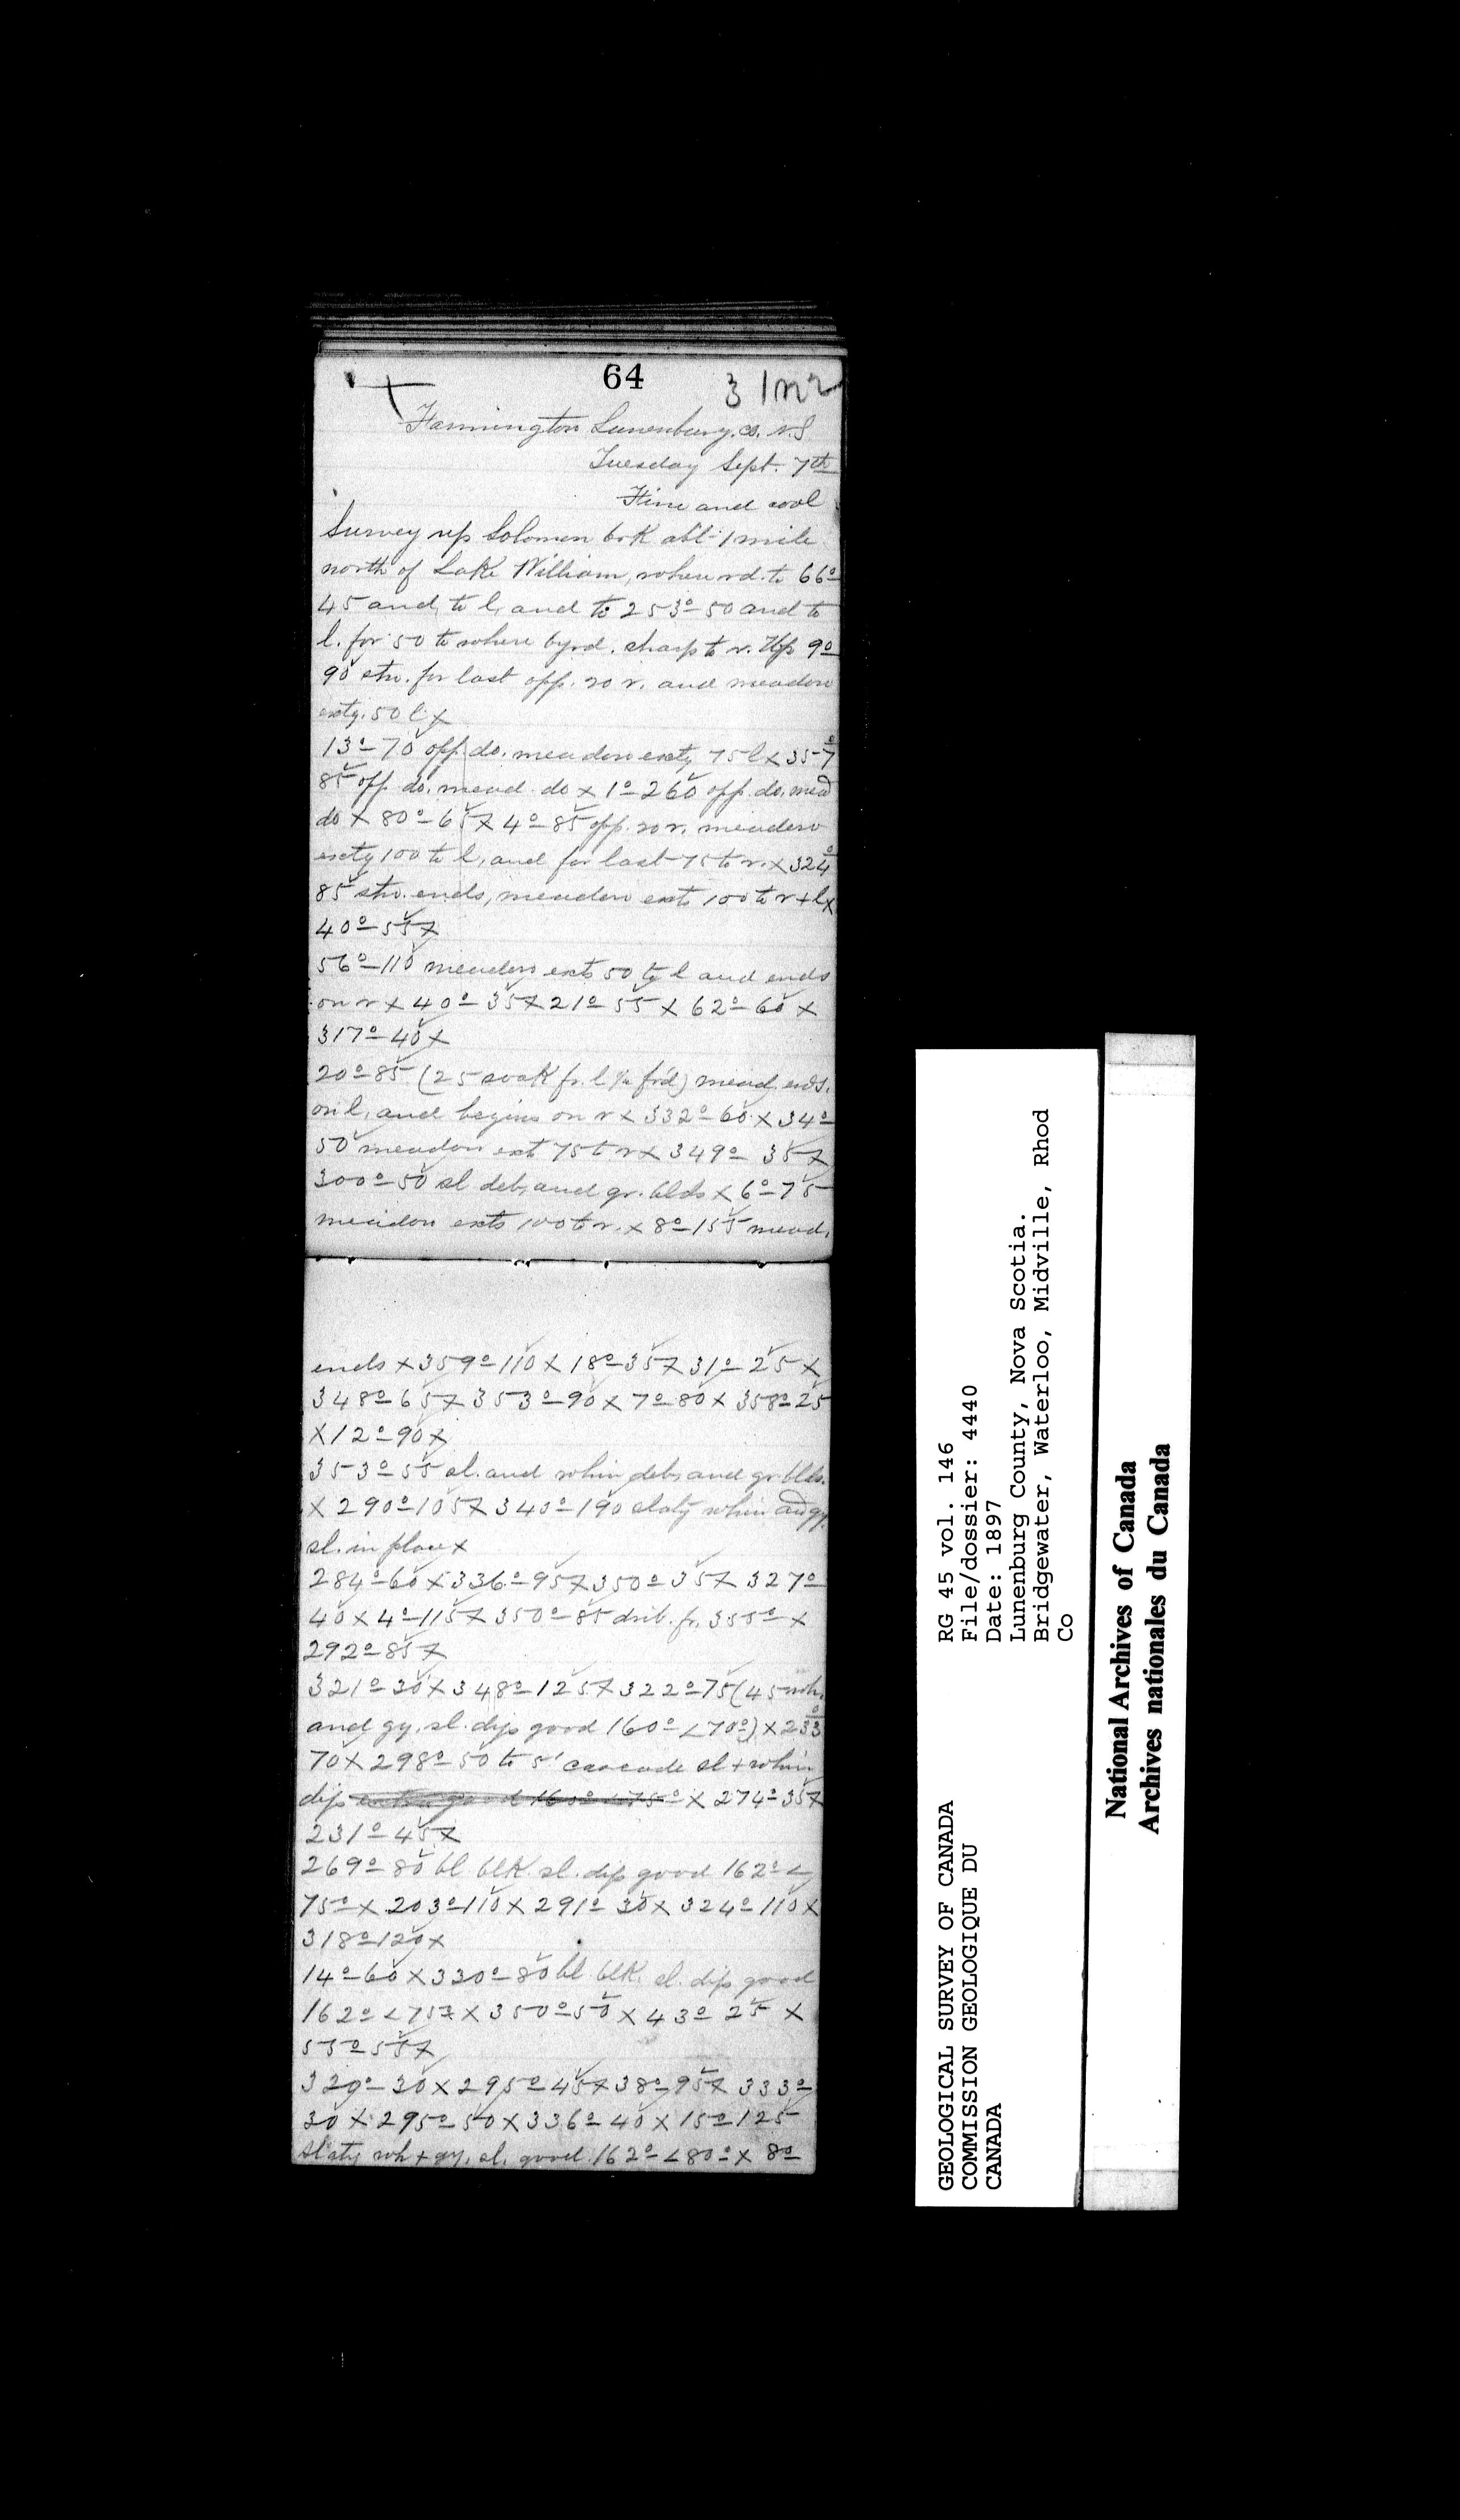 64
3 1
Farmington Lunenburg. Co. N.S
Tuesday Sept. 7th
Fine and cool
Survey up Solomon brk abt 1 mile
north of Lake William, where rd. to 66°
45 and, to l, and to 253°-50 and to
l. for 50 to where byrd. sharp to r. Up 9°
90 str. for last opp. 20 r. and meadow
extg. 50 l x
13°-70 opp. do. meadow extg 75 l x 357°
85 opp do. mead. do x 1°-260 opp. do. mead
do x 80°-65 x 4°-85 opp. 20 r. meadow
extg 100 to l, and for last 75 to r. x 324°
85 str. ends, meadow exts 100 to r + l x
40°-55 x
56°-110 meadow exts 50 to l and ends
on r x 40°-35 x 21°-55 x 62°-60 x
317°-40 x
20°-85 (25 soak fr. l % fr'd) mead. ends.
on l, and begins on r x 332°-60 x 34°-
50 meadow ext 75 to r x 349°-35 x
300°-50 sl deb, and gr. blds x 6°-75
meadow exts 100 to r. x 8°-155 mead.
ends x 359°-110 x 18°-35 x 31°-25 x
348°-65 x 353°-90 x 7°-80 x 358°-25
x 12°-90 x
353°-55 sl. and whin deb, and gr blds.
x 290°-105 x 340°-190 slaty whin and gy.
sl. in place x
284°-60 x 336°-95 x 350°-35 x 327°-
40 x 4°-115 x 350°-85 drib. fr. 355° x
292°-85 x
321°-30 x 348°-125 x 322°-75 (45 wh.
and gy. sl. dip good 160° <70°) x 233°
70 x 298°-50 to 5' cascade sl + whin
dip extra good 160° <75° x 274°-35 x
231°-45 x
269°-80 bl blk. sl. dip good 162° <
75° x 203°-110 x 291°-30 x 324°-110 x
318°-120 x
14°-60 x 330°-80 bl blk. sl. dip good
162° <75° x 350°-50 x 43°-25 x
55°-55 x
329°-30 x 295°-45 x 38°-95 x 333°-
30 x 295°-50 x 336°-40 x 15°-125
slaty wh + gy. sl. good 162° <80° x 8°-
GEOLOGICAL SURVEY OF CANADA
COMMISSION GEOLOGIQUE DU
CANADA
RG 45 vol. 146
File/dossier: 4440
Date: 1897
Lunenburg County, Nova Scotia.
Bridgewater, Waterloo, Midville, Rhod
Co
National Archives of Canada
Archives nationales du Canada